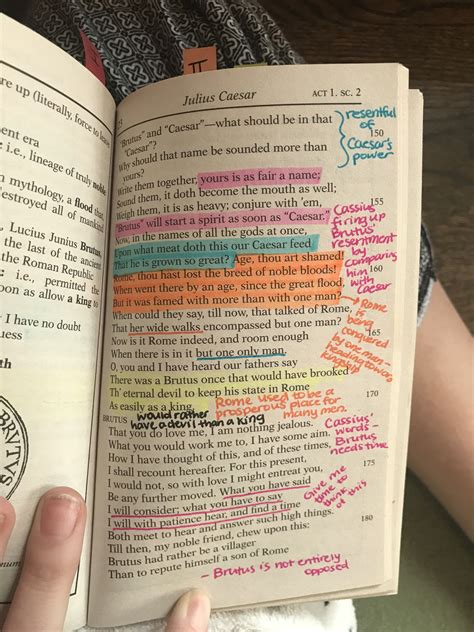 II
re up (literally, force to leave
ent era
: i.e., lineage of truly noble
n mythology, a flood that
estroyed all of mankind
, Lucius Junius Brutus,
the last of the ancient
the Roman Republic
: i.e., permitted the
oon as allow a king to
I have no doubt
uess
th
BRVTVS
num
51
Julius Caesar
ACT 1. SC. 2
"Brutus" and "Caesar"—what should be in that
"Caesar"? 150
Why should that name be sounded more than
yours?
Write them together, yours is as fair a name;
Sound them, it doth become the mouth as well;
Weigh them, it is as heavy; conjure with 'em, 155
"Brutus" will start a spirit as soon as "Caesar."
Now, in the names of all the gods at once,
Upon what meat doth this our Caesar feed
That he is grown so great? Age, thou art shamed!
Rome, thou hast lost the breed of noble bloods! 160
When went there by an age, since the great flood,
But it was famed with more than with one man?
When could they say, till now, that talked of Rome,
That her wide walks encompassed but one man?
Now is it Rome indeed, and room enough
When there is in it but one only man.
O, you and I have heard our fathers say
There was a Brutus once that would have brooked
Th' eternal devil to keep his state in Rome
As easily as a king. 170
BRUTUS
That you do love me, I am nothing jealous.
What you would work me to, I have some aim.
How I have thought of this, and of these times,
I shall recount hereafter. For this present, 175
I would not, so with love I might entreat you,
Be any further moved. What you have said
I will consider; what you have to say
I will with patience hear, and find a time
Both meet to hear and answer such high things. 180
Till then, my noble friend, chew upon this:
Brutus had rather be a villager
Than to repute himself a son of Rome
resentful
of
Caesar's
power
Cassius
firing up
Brutus'
resentment
by
comparing
him
with
Caesar
Rome
is
being
conquered
by one man -
heading towards
kingship
Rome used to be a
prosperous place for
many men.
would rather
have a devil than a king
Cassius'
words -
Brutus
needs time
Give me
time to
think of
this
- Brutus is not entirely
opposed